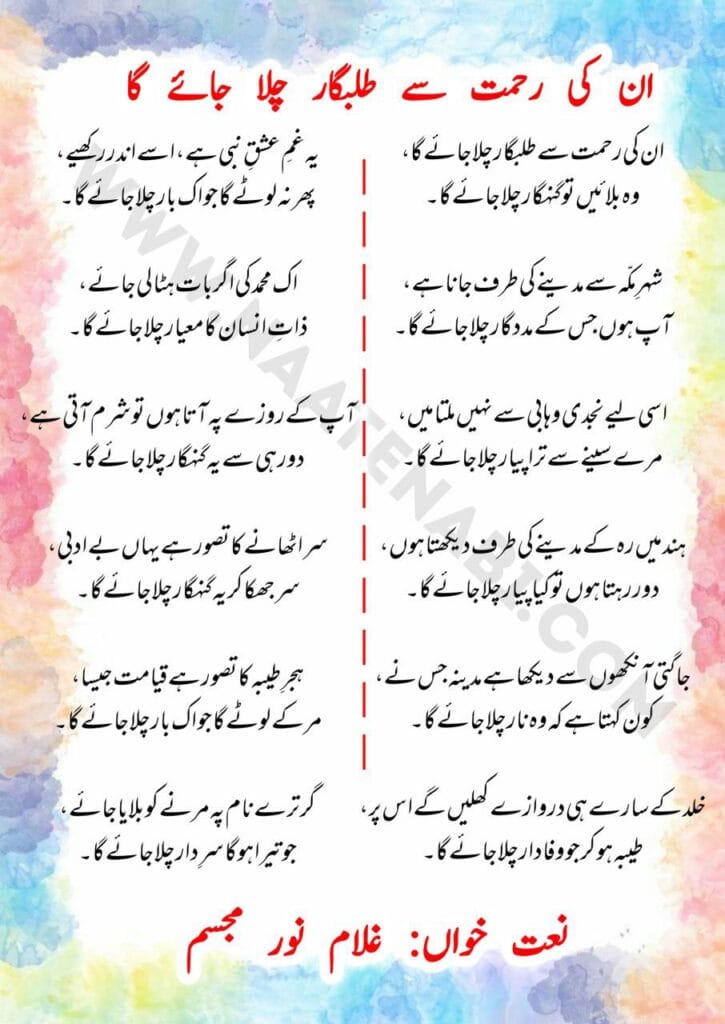 ان کی رحمت سے طلبگار چلا جائے گا
ان کی رحمت سے طلبگار چلا جائے گا،
وہ بلائیں تو گنہگار چلا جائے گا۔
شہرِ مکّہ سے مدینے کی طرف جانا ہے،
آپ ہوں جس کے مددگار چلا جائے گا۔
اسی لیے نجدی وہابی سے نہیں ملتا میں،
مرے سینے سے ترا پیار چلا جائے گا۔
ہند میں رہ کے مدینے کی طرف دیکھتا ہوں،
دور رہتا ہوں تو کیا پیار چلا جائے گا۔
جاگتی آنکھوں سے دیکھا ہے مدینہ جس نے،
کون کہتا ہے کہ وہ نار چلا جائے گا۔
خلد کے سارے ہی دروازے کھلیں گے اس پر،
طیبہ ہو کر جو وفادار چلا جائے گا۔
یہ غمِ عشقِ نبی ہے، اسے اندر رکھیے،
پھر نہ لوٹے گا جو اک بار چلا جائے گا۔
اک محمد کی اگر بات ہٹا لی جائے،
ذاتِ انسان کا معیار چلا جائے گا۔
آپ کے روزے پہ آتا ہوں تو شرم آتی ہے،
دور ہی سے یہ گنہگار چلا جائے گا۔
سر اٹھانے کا تصور ہے یہاں بے ادبی،
سر جھکا کر یہ گنہگار چلا جائے گا۔
ہجرِ طیبہ کا تصور ہے قیامت جیسا،
مر کے لوٹے گا جو اک بار چلا جائے گا۔
گر ترے نام پہ مرنے کو بلایا جائے،
جو تیرا ہوگا سرِ دار چلا جائے گا۔
نعت خواں: غلام نور مجسم
WWW.NAATENABI.COM